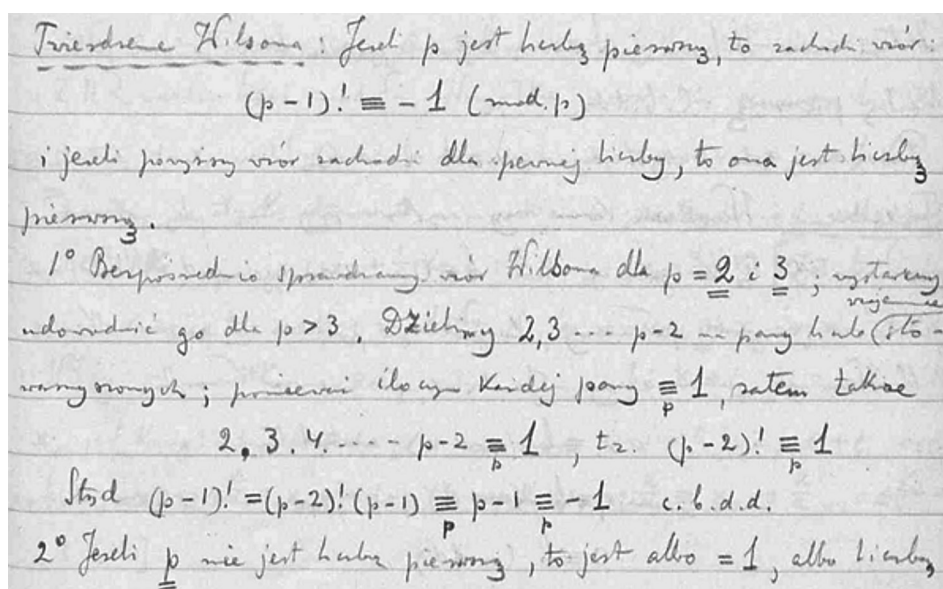 Twierdzenie Wilsona: Jeżeli p jest liczbą pierwszą, to zachodzi wzór:
(p-1)! ≡ -1 (mod. p)
i jeżeli powyższy wzór zachodzi dla pewnej liczby, to ona jest liczbą
pierwszą.
1° Bezpośrednio sprawdzamy wzór Wilsona dla p = 2 i 3, wystarczy
wzajemnie
udowodnić go dla p > 3. Dzielimy 2, 3 ... p-2 na pary liczb (sto-
warzyszonych; ponieważ iloczyn każdej pary ≡p 1, zatem także
2. 3. 4. - - - p-2 ≡p 1, tz. (p-2)! ≡p 1
Stąd (p-1)! = (p-2)! (p-1) ≡p p-1 ≡p -1 c.b.d.d.
2° Jeżeli p nie jest liczbą pierwszą, to jest albo = 1, albo liczbą,